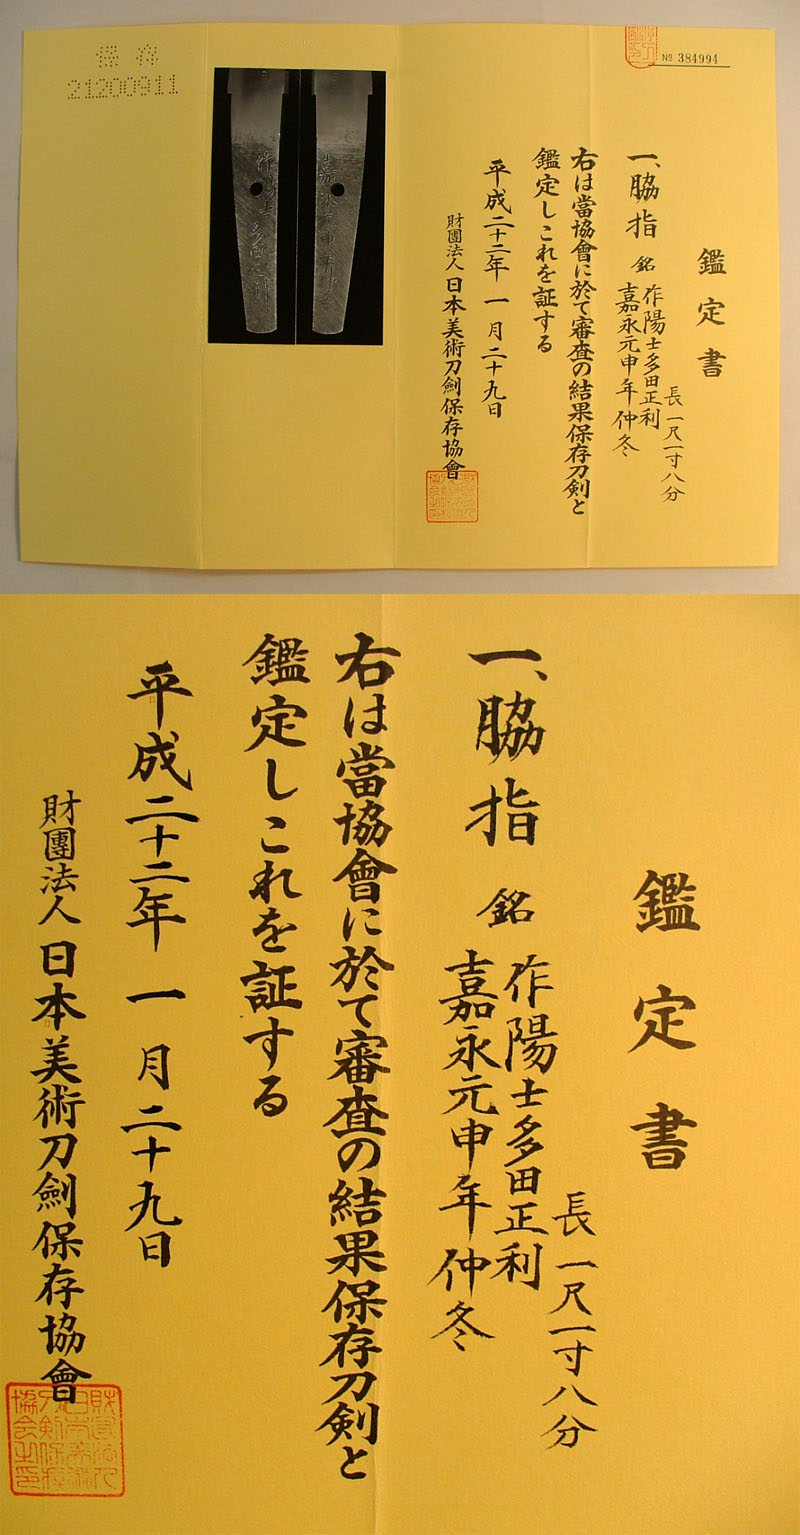 № 384994
鑑定書
一、脇指 銘 作陽士多田正利
嘉永元申年仲冬
長一尺一寸八分
右は當協會に於て審査の結果保存刀剣と
鑑定しこれを証する
平成二十二年一月二十九日
財團法人日本美術刀劍保存協會
保存
21200911
鑑定書
長一尺一寸八分
一、脇指 銘 作陽士多田正利
嘉永元申年仲冬
右は當協會に於て審査の結果保存刀剣と
鑑定しこれを証する
平成二十二年一月二十九日
財團法人日本美術刀劍保存協會